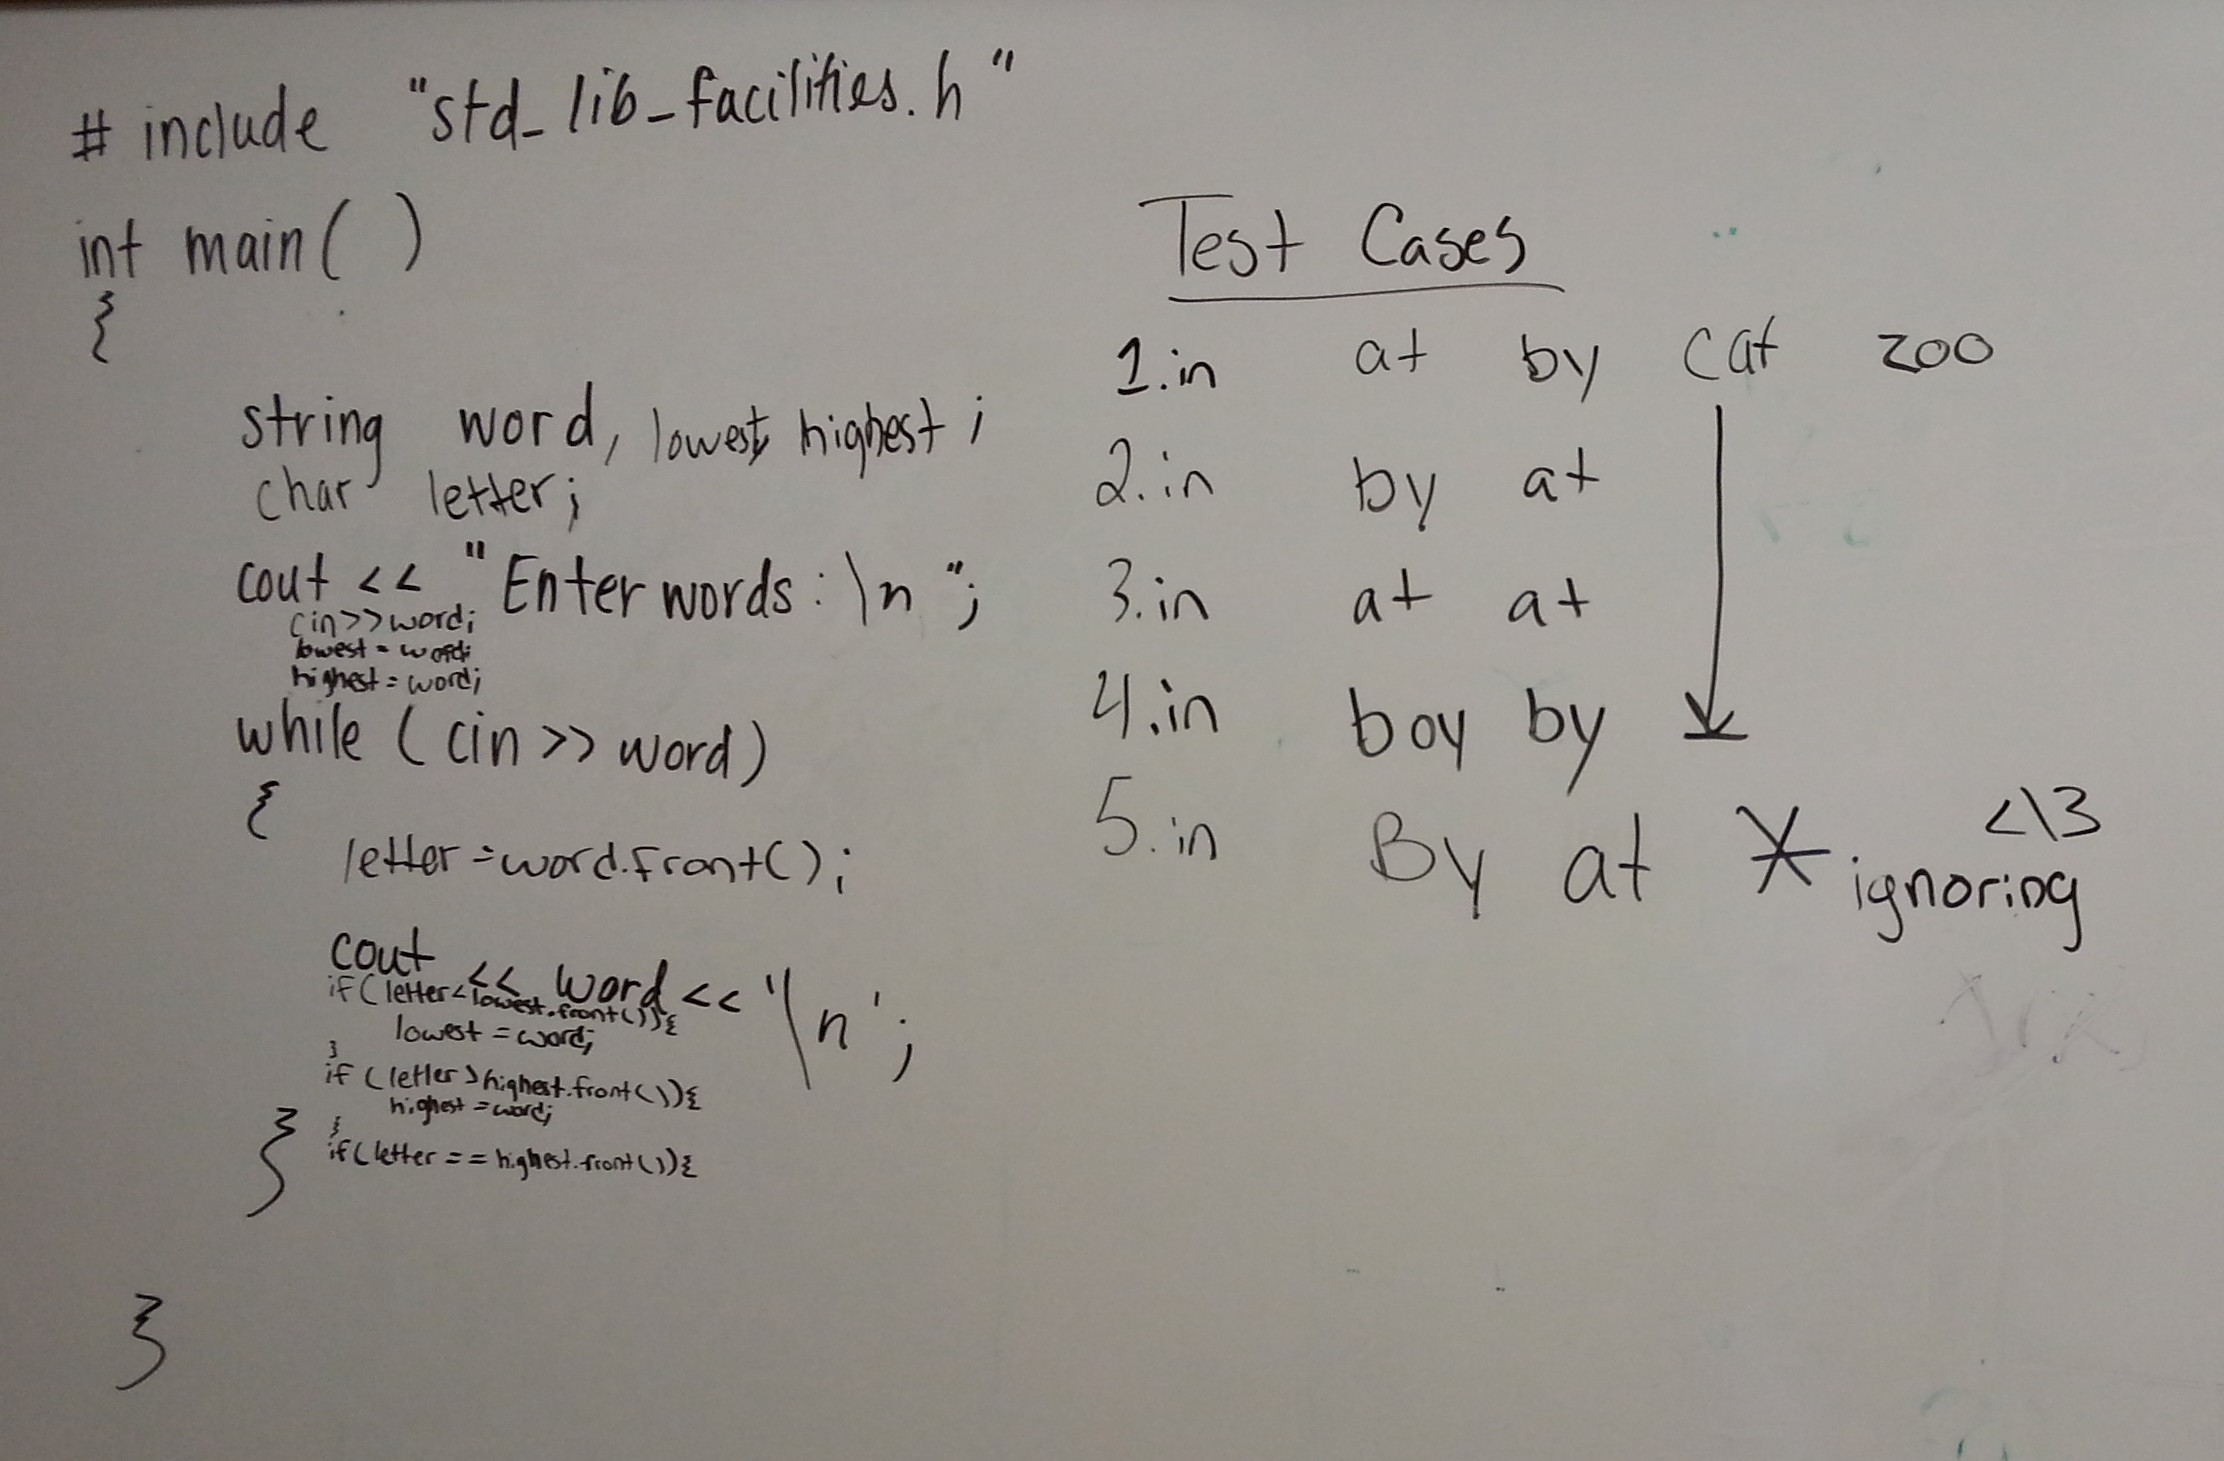 # include "std_lib_facilities.h"
int main( )
{
string word, lowest, highest;
char letter;
cout << "Enter words: \n ";
cin>>word;
lowest = word;
highest = word;
while (cin >> word)
{
letter = word.front();
cout << word << '\n';
if (letter < lowest.front()){
lowest = word;
}
if (letter > highest.front()){
highest = word;
}
if (letter == highest.front()){
}
}
Test Cases
1.in at by cat zoo
2.in by at
3.in at at
4.in boy by
5.in By at * ignoring
<\3